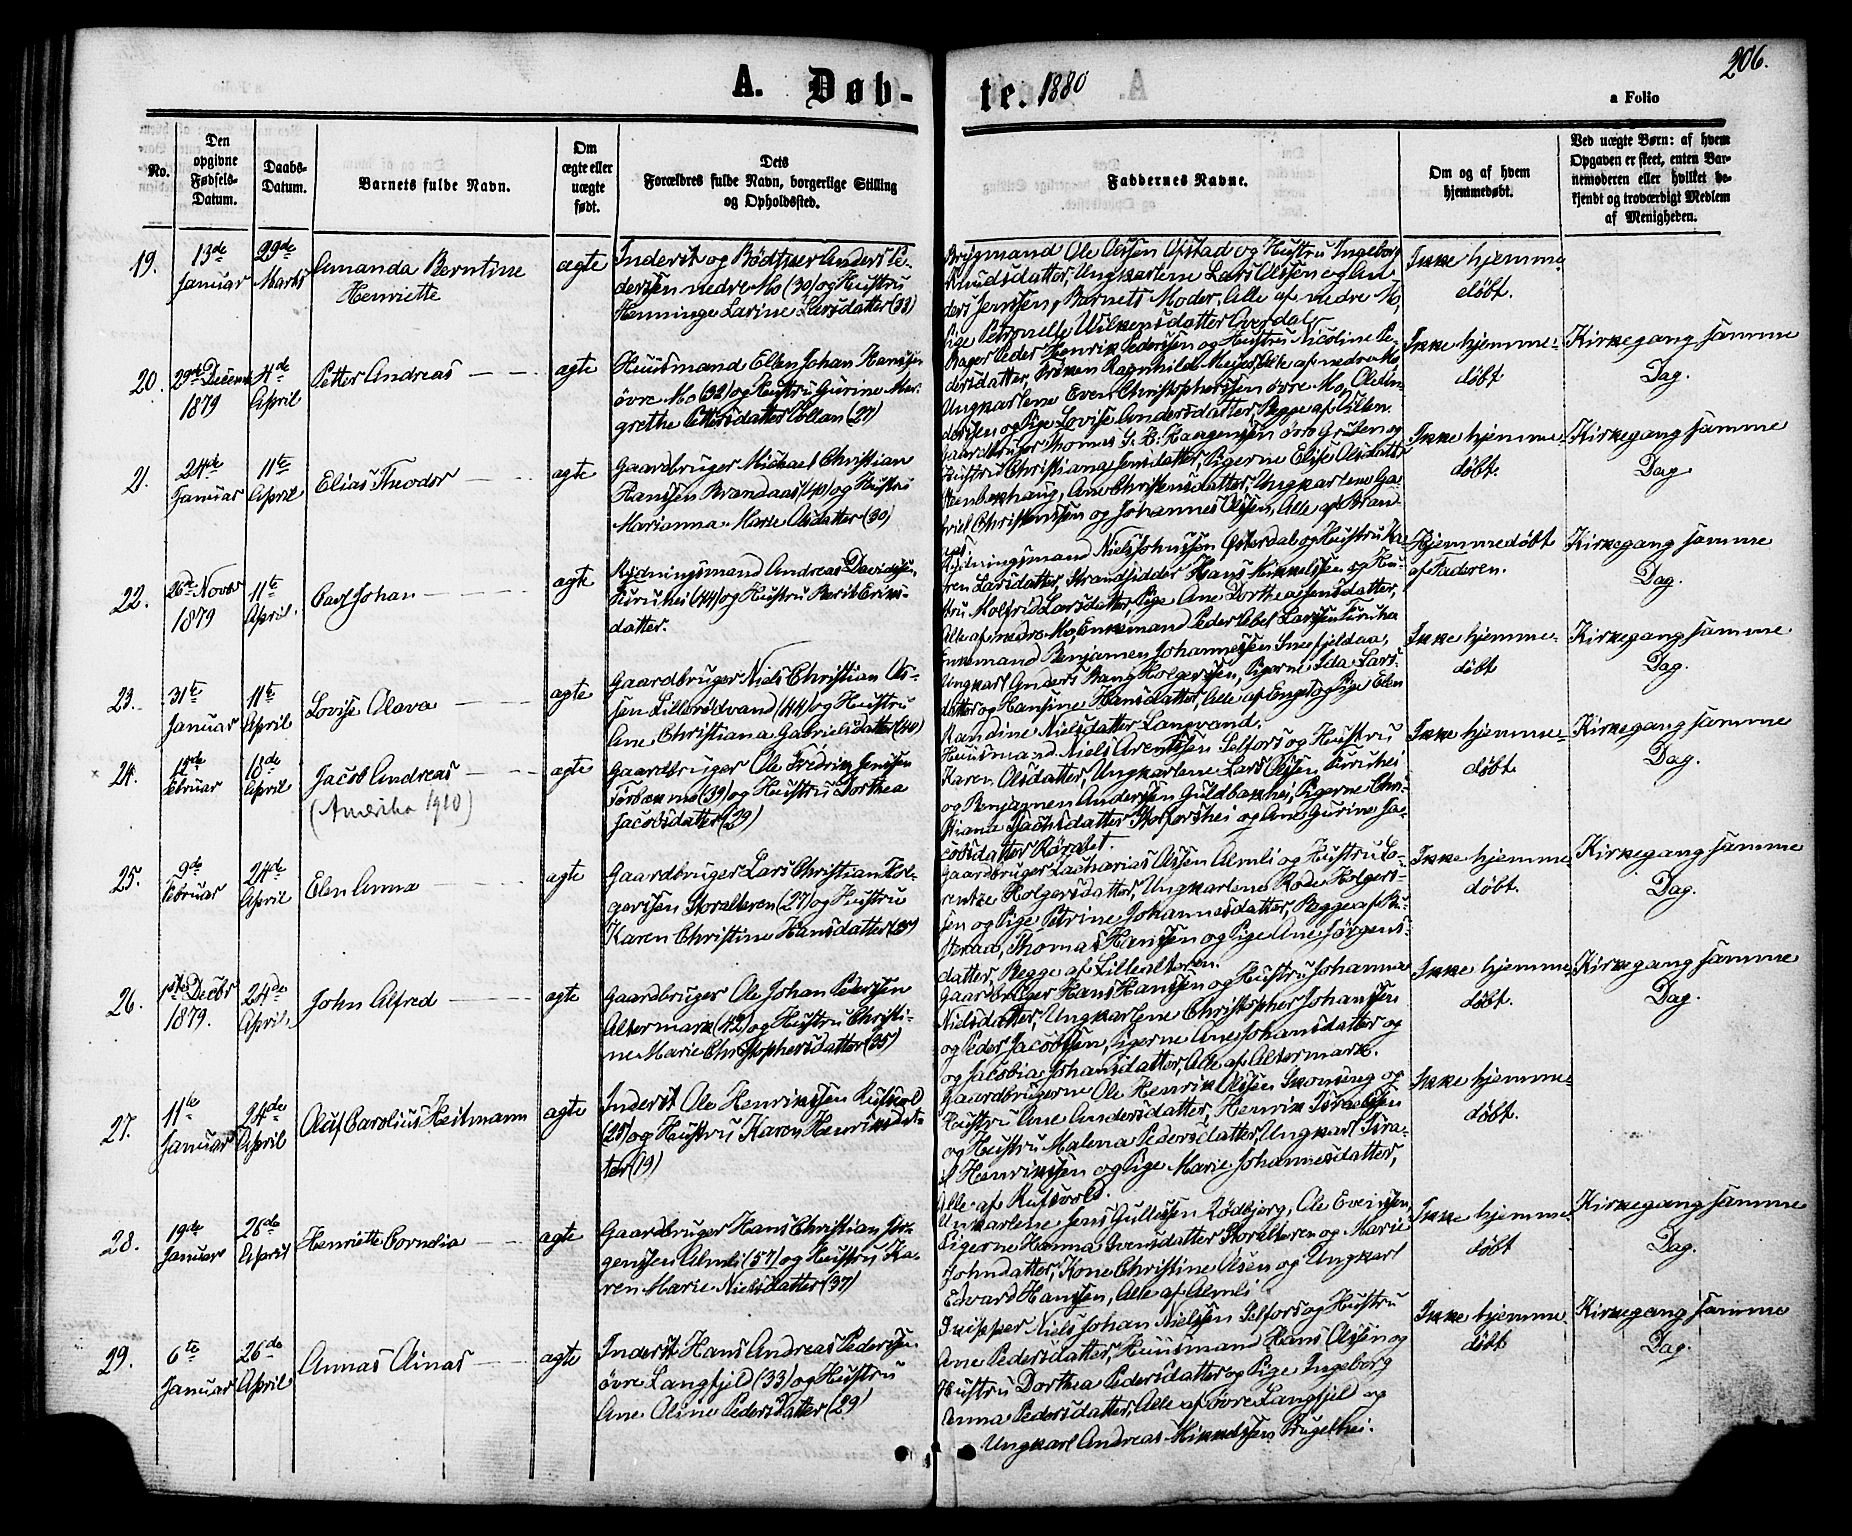 206.
A. Døb- te. 1880
a Folio
No.
Den opgivne Fødsels-Datum.
Daabs-Datum.
Barnets fulde Navn.
Om ægte eller uægte født.
Dets
Forældres fulde Navn, borgerlige Stilling
og Opholdssted.
Faddernes Navne.
Om og af hvem
hjemmedøbt.
Ved uægte Børn: af hvem
Opgaven er skeet, enten Bar-
nemoderen eller hvilket be-
kjendt og troværdigt Medlem
af Menigheden.
19.
13de Januar
29de Marts
Amanda Berntine
Henriette
ægte
Inderst og Bødtker Anders Pe-
dersen nedre Mo (30) og Hustru
Henninge Larine Larsdatter (33)
Ole Olssen og Hustru Ingeborg
Knudsdatter, Ungkarlene Lars Olssen og An-
ders Jenssen, Barnets Moder, Alle af nedre Mo,
Pige Petronelle
Ikke hjemme-
døbt.
20.
29de Decemb 1879
4de April
Petter Andreas
ægte
Huusmand Elten Johan Hanssen
øvre Mo (32) og Hustru Gurine Mar-
grethe Pettersdatter (27)
Bager Peder Henrik Pederssen og Hustru Nicoline Pe-
dersdatter, Frøken Ragnhild Alle af nedre Mo
Ungkarlene Even Christopherssen øvre Mo, Ole An-
derssen og Pige Lovise Andersdatter, Begge af
Ikke hjemme-
døbt
Kirkegang samme
Dag.
21.
24de Januar
11te April
Elias Theodor
ægte
Gaardbruger Michael Christian
Hanssen Brandaas (40) og Hustru
Marianna Marie Olsdatter (30)
Gaardbruger Thomas Haagenssen øvre Gruben og
Hustru Christiane Jensdatter, Pigerne Elise Olsdatter
Stenbekhaug, Ane Christensdatter, Ungkarlene Ga-
briel Christenssen og Johannes Olssen, Alle af Bran-
Ikke hjemme-
døbt.
Kirkegang samme
Dag
22.
26de Novbr 1879
11te April.
Carl Johan
ægte
Rydningsmand Andreas Davidssen
Furuhei (44) og Hustru Berit Eriks-
datter.
Rydningsmand Niels Johnssen og Hustru Ka-
ren Larsdatter, Strandsidder Hans Mikkelssen og Hu-
stru Molfrid Larsdatter, Pige Ane Dorthea Jensdatter,
Alle af nedre Mo, Enkemand Peder Abel Larssen Furuhei
Hjemmedøbt
af Faderen.
Kirkegang samme
Dag.
23.
31te Januar
11te April
Lovise Olava
ægte
Gaardbruger Niels Christian Ols-
sen Lillerødvand (44) og Hustru
Ane Christiana Gabrielsdatter (40)
Enkemand Benjamen Johannessen Snefjeldaa,
Ungkarl Anders Bang Holgerssen, Pigerne Ida Lars-
datter og Hansine Hansdatter, Alle af Enget og Pige Elen
Randine Nielsdatter Langvand.
Ikke hjemme-
døbt
Kirkegang samme
Dag.
24.
12te Februar
18de April
Jacob Andreas
(Amerika 1910)
ægte
Gaardbruger Ole Fredrik Jenssen
(39) og Hustru Dorthea
Jacobsdatter (29)
Huusmand Niels Arentssen Selfors og Hustru
Karen Olsdatter, Ungkarlene Lars Olssen Furuhei
og Benjamen Anderssen Guldbakhei, Pigerne Chri-
stiane Storforshei og Ane Gurine Ja-
cobsdatter
Ikke hjemme-
døbt.
Kirkegang samme
Dag.
25.
9de Februar
24de April
Elen Anna
ægte
Gaardbruger Lars Christian Hol-
gerssen Storalteren (27) og Hustru
Karen Christine Hansdatter
Gaardbruger Zacharias Olssen Almli og Hustru Lo-
rentze Holgersdatter, Ungkarlene Rode Holgers-
sen og Pige Petrine Johannesdatter, Begge af Bu-
steraa, Thomas Hanssen og Pige Ane Jørgens-
datter, Begge af Lillealteren.
Ikke hjemme-
døbt.
Kirkegang samme
Dag.
26.
1ste Decbr 1879.
24de April.
John Alfred
ægte
Gaardbruger Ole Johan Pederssen
Altermark (42) og Hustru Christi-
ne Marie Christophersdatter (35)
Gaardbruger Hans Hanssen og Hustru Johanna
Nielsdatter, Ungkarlene Christopher Johanssen
og Peder Jacobssen, Pigerne Ane Johansdatter og
og Jacobia Johansdatter, Alle af Altermark.
Ikke hjemme-
døbt.
Kirkegang samme
Dag.
27.
11te Januar
24de April
Oluf Carolius Heitmann
ægte
Inderst Ole Henrikssen Rufsvold
(25) og Hustru Karen Henriksdat-
ter (19)
Gaardbrugerne Ole Henrik Olssen Skonseng og
Hustru Ane Andersdatter, Henrik Israelssen
og Hustru Malena Pedersdatter, Ungkarl Isra-
el Henrikssen og Pige Marie Johannesdatter,
Alle af Rufsvold.
Ikke hjemme-
døbt.
28.
19de Januar
26de April
Henriette Cornelia
ægte
Gaardbruger Hans Christian Jør-
genssen Almli (57) og Hustru Ka-
ren Marie Nielsdatter (37)
Unkarlene Jens Gullessen Rødbjerg, Ole Evenssen,
Pigerne Hanna Svensdatter Storalteren og Marie
Johndatter, Kone Christine Olsen og Ungkarl
Edvard Hanssen, Alle af Almli
Ikke hjemme-
døbt
Kirkegang samme
Dag.
29.
6te Januar
26de April
Annas Ainas
ægte
Inderst Hans Andreas Pederssen
øvre Langfjeld (33) og Hustru
Ane Oline Pedersdatter (29)
Skipper Niels Johan Nielssen Selfors og Hustru
Ane Pedersdatter, Huusmand Hans Olssen og
Hustru Dorthea Pedersdatter og Pige Ingeborg
Anna Pedersdatter, Alle af øvre Langfjeld og
Ungkarl Andreas Mikkelssen
Ikke hjemme-
døbt
Kirkegang samme
Dag.